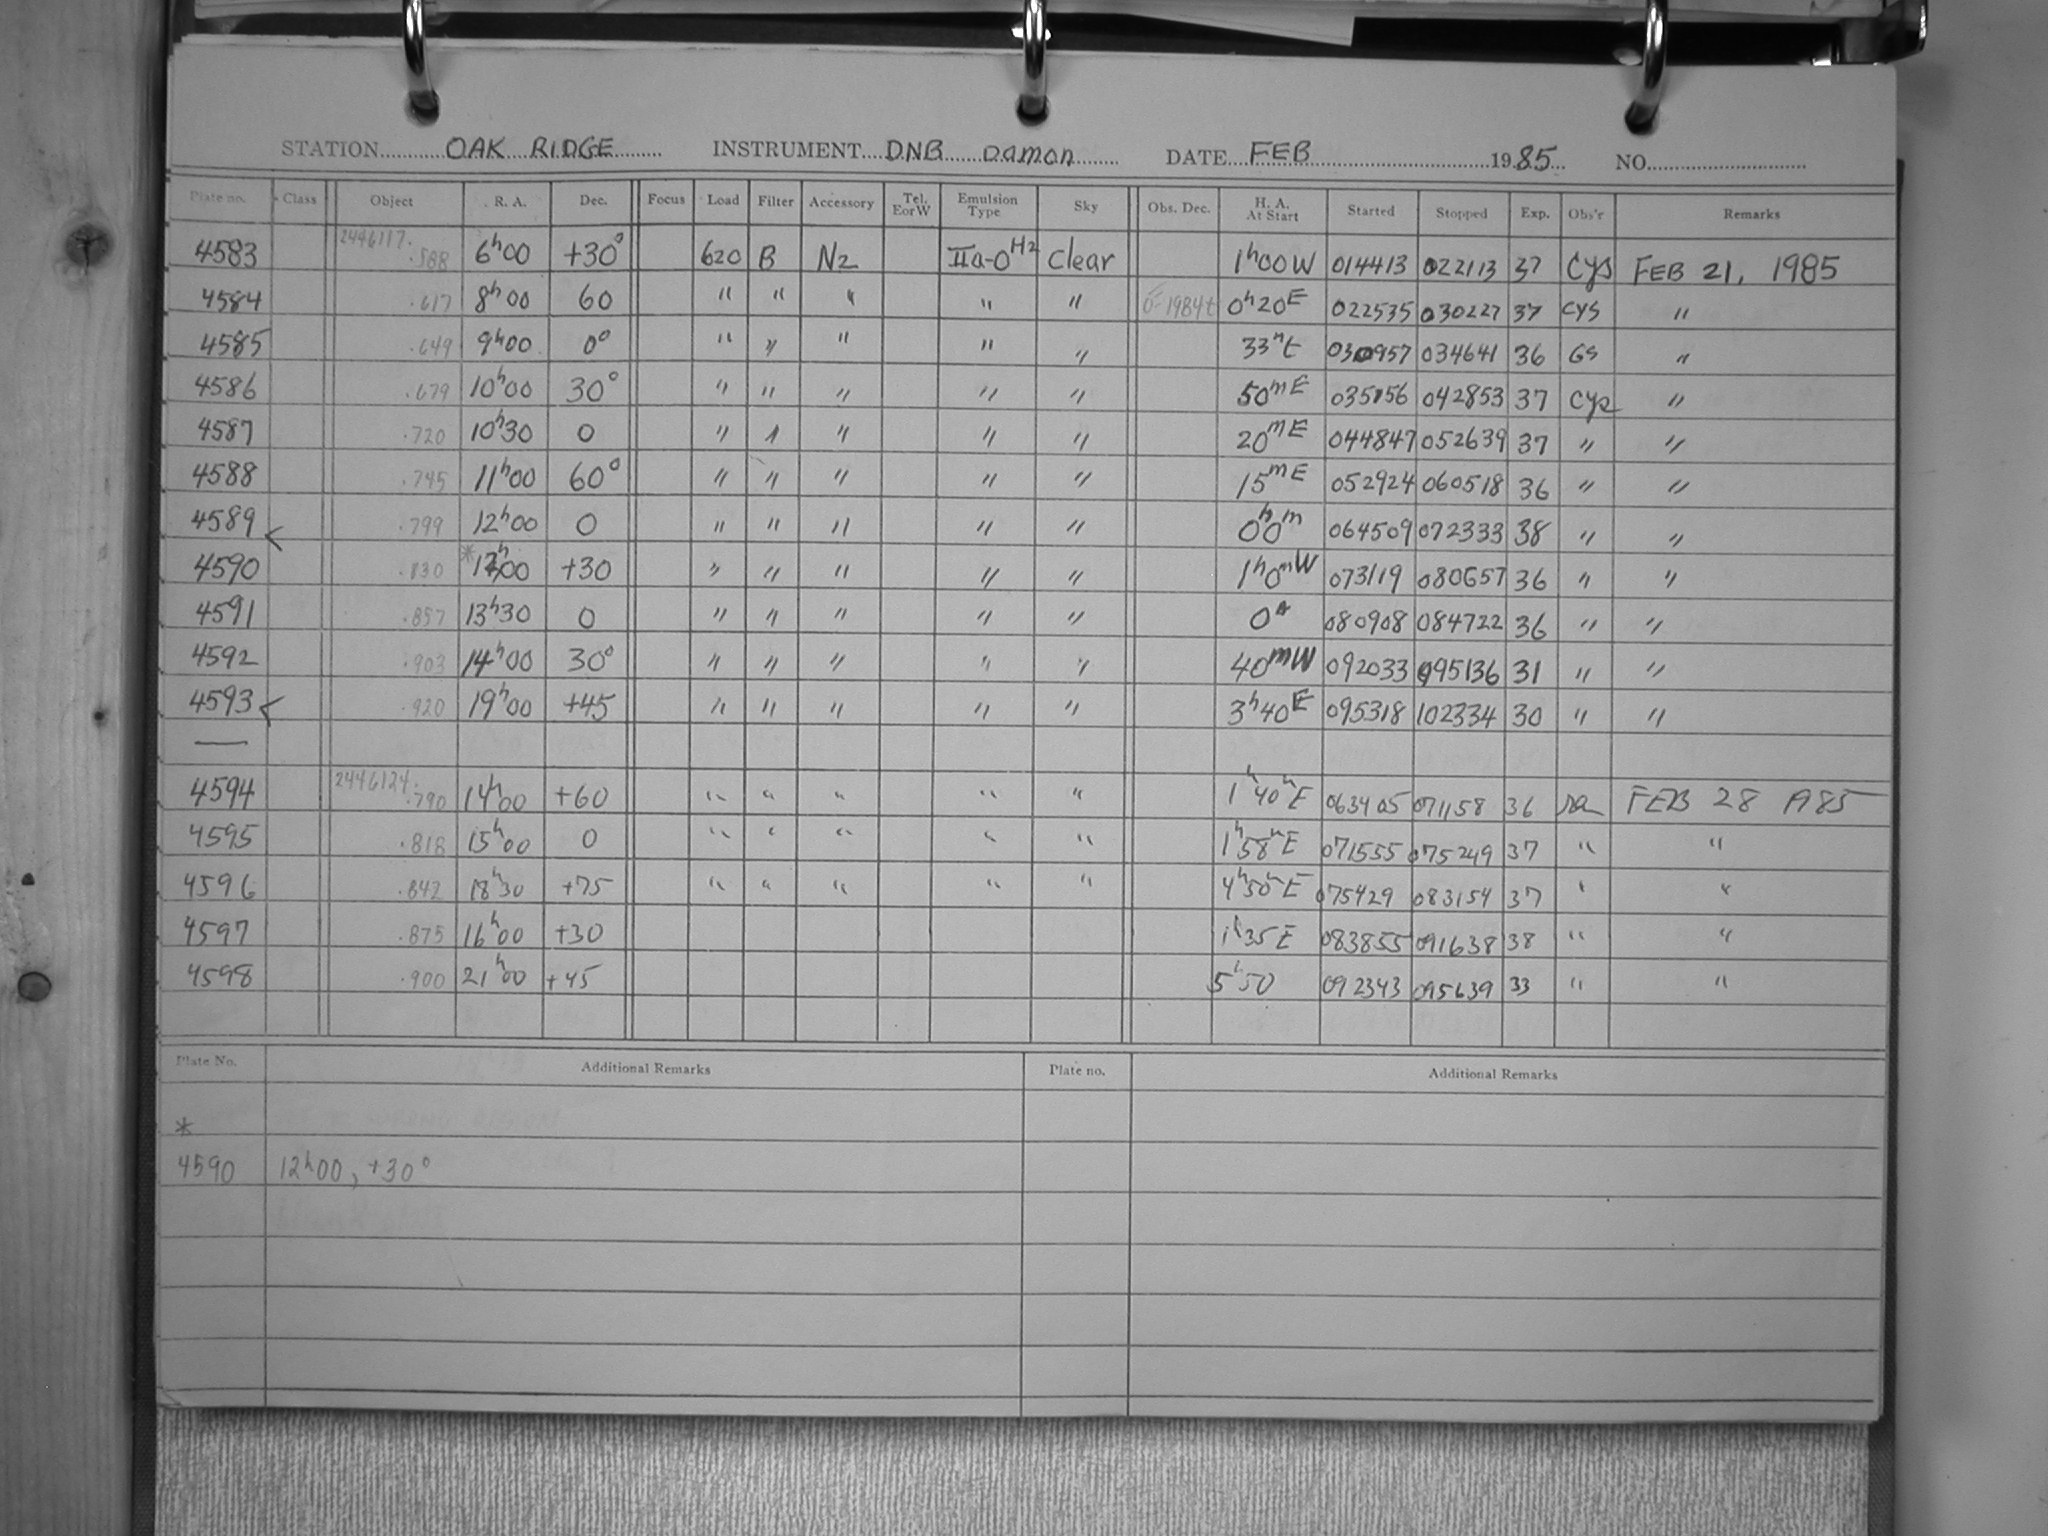 STATION OAK RIDGE INSTRUMENT DNB Damon DATE FEB 1985 NO.
Plate no. Class Object R. A. Dec. Focus Load Filter Accessory Tel. E or W Emulsion Type Sky Obs. Dec. H. A. At Start Started Stopped Exp. Obs'r Remarks
4583 2446117. .588 6h00 +30° 620 B N2 IIa-O H2 Clear 1h00W 014413 022113 37 CYS FEB 21, 1985
4584 .617 8h00 60 " " " " " 1984t 0h20E 022535 030227 37 CYS "
4585 .649 9h00 0° " " " " " 030957 034641 36 GS "
4586 .679 10h00 30° " " " " " 50mE 035156 042853 37 CYS "
4587 .720 10h30 0 " " " " " 20mE 044847 052639 37 " "
4588 .745 11h00 60° " " " " " 15mE 052924 060518 36 " "
4589 < .799 12h00 0 " " " " " 0h0m 064509 072333 38 " "
4590 .830 * +30 " " " " " 1h0mW 073119 080657 36 " "
4591 .857 13h30 0 " " " " " 0h 080908 084722 36 " "
4592 .903 14h00 30° " " " " " 40mW 092033 095136 31 " "
4593 < .920 19h00 +45 " " " " " 3h40E 095318 102334 30 " "
—
4594 2446124. .790 14h00 +60 " " " " " 1h40mE 063405 071158 36 FEB 28 1985
4595 .818 15h00 0 " " " " " 1h58mE 071555 075249 37 " "
4596 .842 18h30 +75 " " " " " 4h50mE 075429 083154 37 " "
4597 .875 16h00 +30 1h35E 083855 091638 38 " "
4598 .900 21h00 +45 5h50 092343 095639 33 " "
Plate No. Additional Remarks Plate no. Additional Remarks
*
4590 12h00, +30°